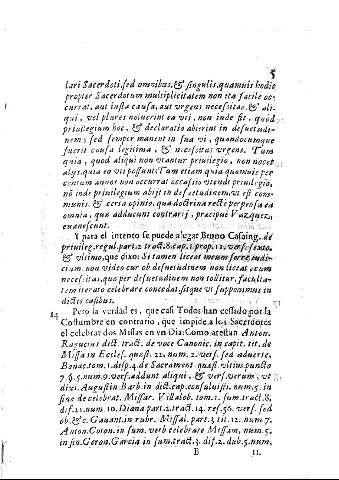 5
lari Sacerdoti, sed omnibus, & singulis, quamuis hodie
propter Sacerdotum multiplicitatem non ita facile oc-
currat, aut iusta causa, aut vrgens necessitas, & ali-
qui, vel plures noluerint ea vti, non inde fit, quòd
priuilegium hoc, & declaratio abierint in desuetudi-
nem; sed semper manent in sua vi, quandocumque
fuerit causa legitima, & necessitas vrgens. Tum
quia, quod aliqui non vtantur priuilegio, non nocet
alijs, quia eo vti possunt; Tum etiam quia quamuis per
centum annos non occurrat occasio vtendi priuilegio,
nõ inde priuilegium abijt in desuetudinem, vt est com-
munis, & certa opinio, qua doctrina rectè perpensa ea
omnia, quæ adducunt contrarij, præcipuè Vazquez,
euanescunt.
Y para el intento se puede alegar Bruno Casaing. de
priuileg. regul. part. 2. tract. 8. cap. 1. prop. 12. vers. sexto,
& vltimo, que dixo: Si tamen liceat meum ferre iudi-
cium, non video cur ob desuetudinem non liceat, cum
necessitas, quæ per desuetudinem non tollitur, faculta-
tem iterato celebrare concedat, sitque vt supponimus in
dictis casibus.
14 Pero la verdad es, que casi Todos han cessado por la
Costumbre en contrario, que impide à los Sacerdotes
el celebrar dos Missas en vn Dia: Como atestan Anton.
Ragucius dict. tract. de voce Canonic. in capit. tit. de
Missa in Eccles. quæst. 22. num. 2. vers. sed aduerte.
Bonac. tom. 1. disp. 4. de Sacrament. quæst. vltim. puncto
7. §. 5. num. 9. vers. addunt aliqui. & vers. verum, vt
dixi. Augustin Barb. in dict. cap. consuluisti. num. 5. in
fine de celebrat. Missar. Villalob. tom. 1. sum. tract. 8.
dif. 21. num. 10. Diana part. 2. tract. 14. res. 56. vers. sed
ob. & c. Gauant. in rubr. Missal. part. 3. tit. 12. num. 7.
Anton. Coton. in sum. verb. celebrare Missam, num. 5.
in fin. Geron. Garcia in sum. tract. 3. dif. 2. dub. 5. num,
B 11.